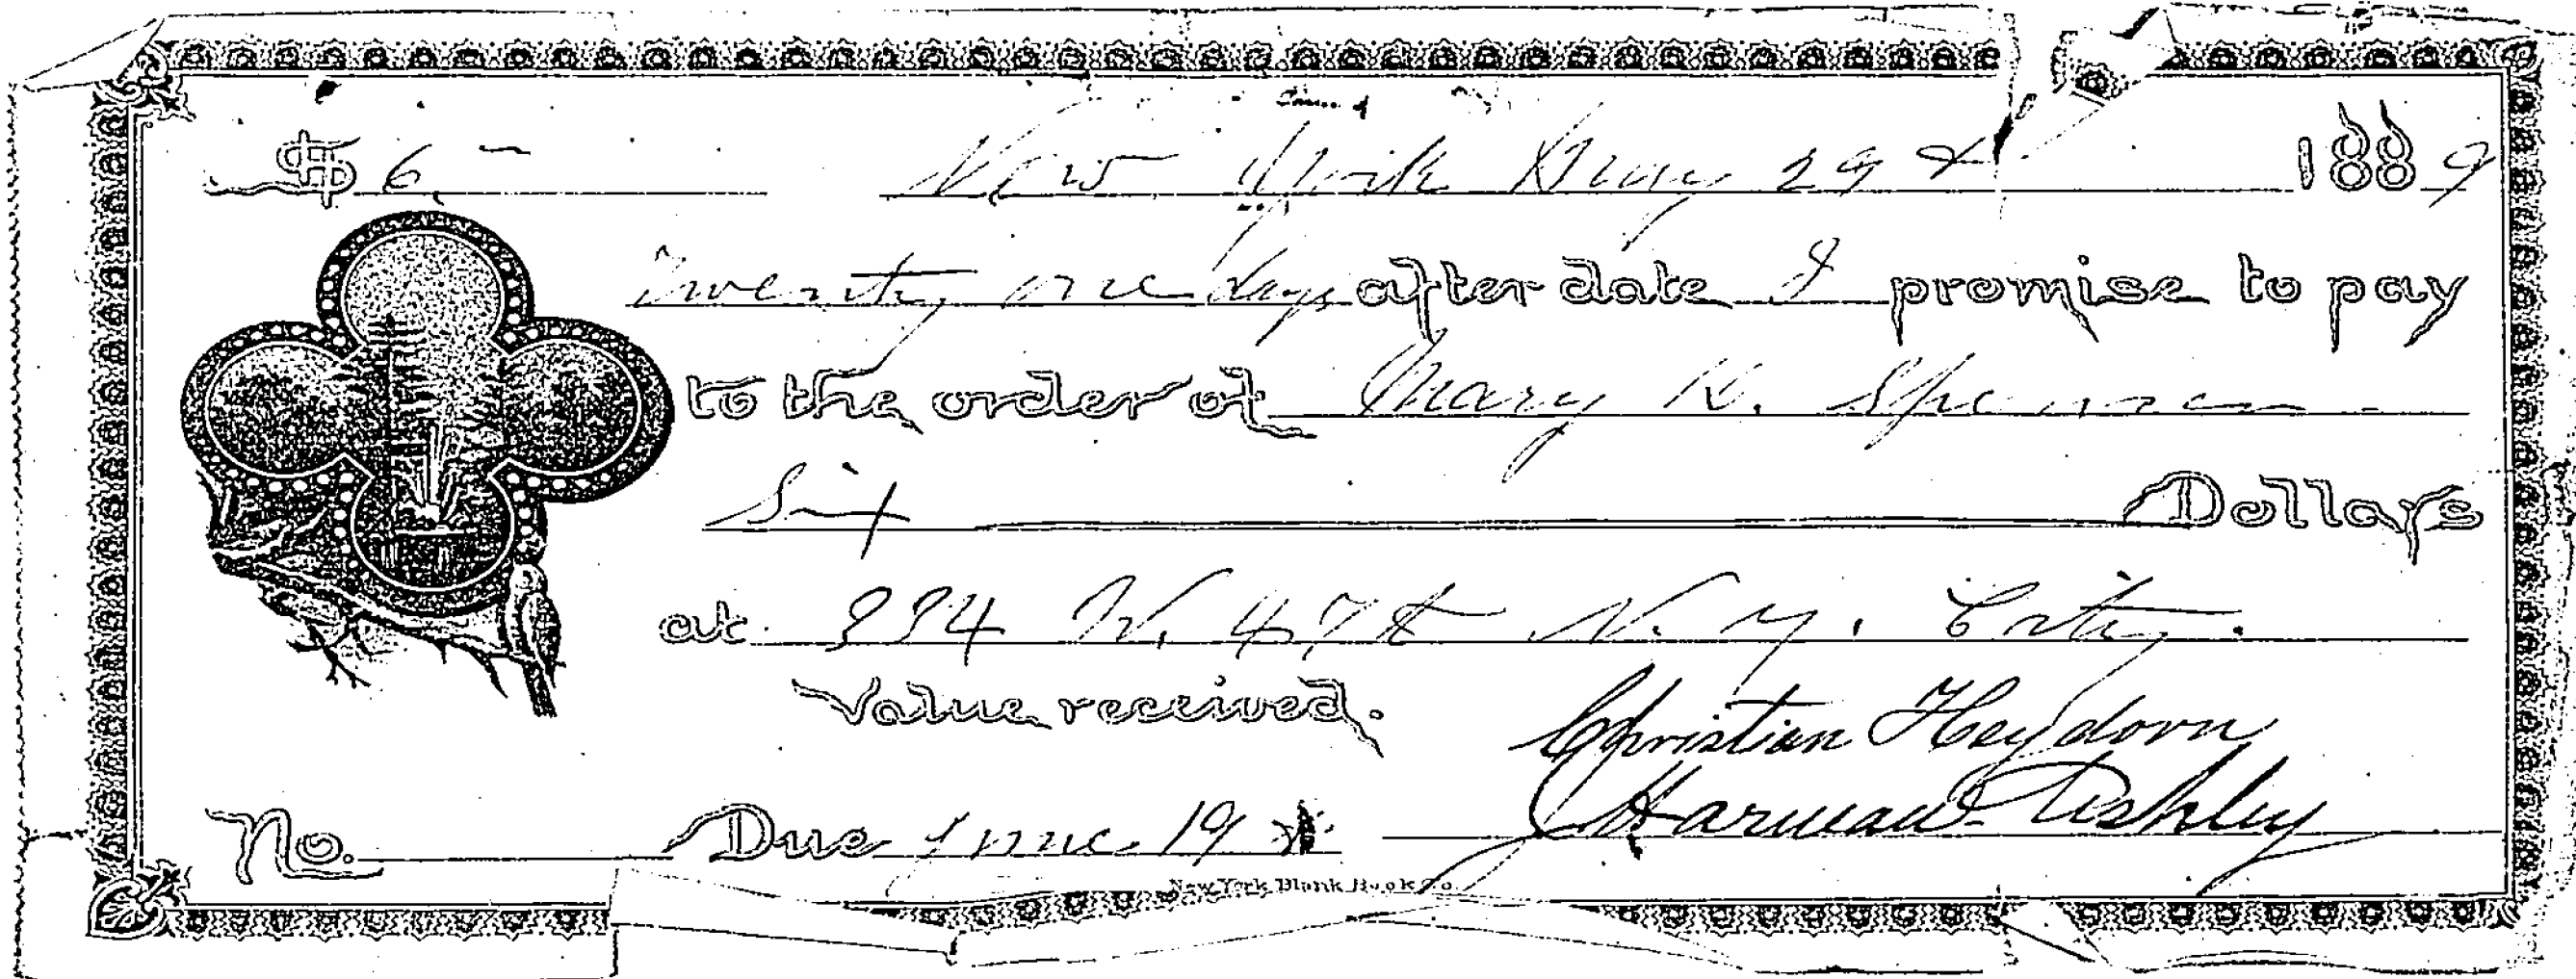 $ 6 - New York May 29 th 1889
Twenty one days after date I promise to pay
to the order of Mary K.
Six Dollars
at 334 W. 47 th N. Y. City.
Value received.
Christian Heydorn
Harman Ashley
No. Due June 19
New York Blank Book Co.